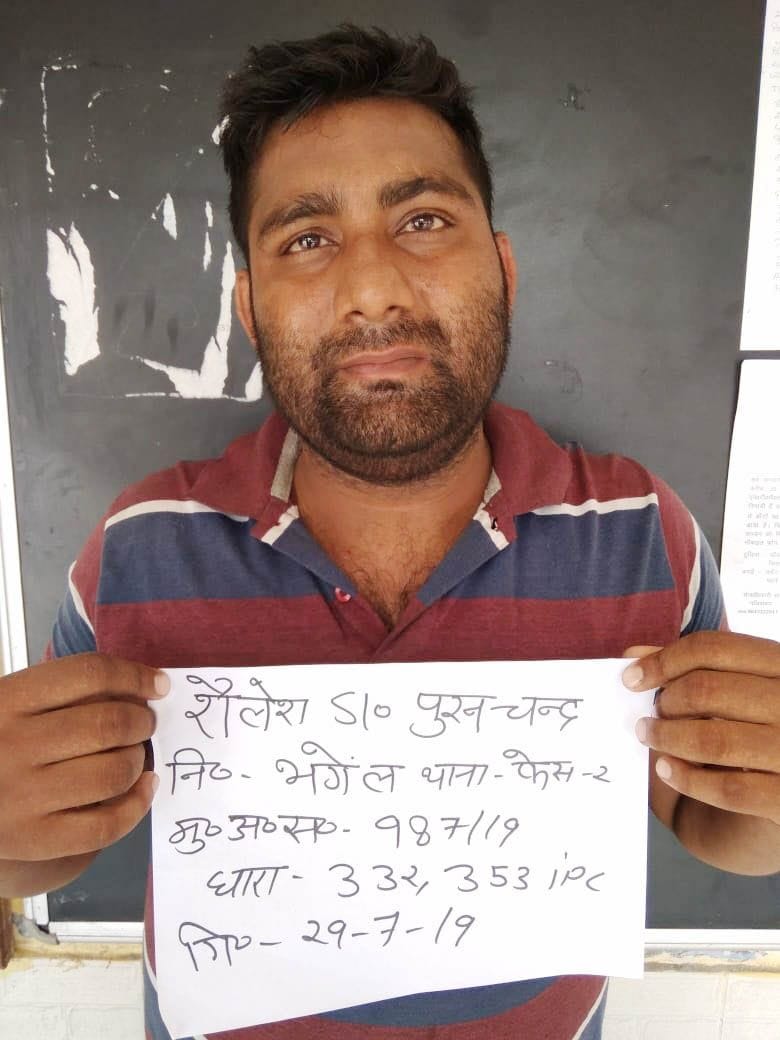 शैलेश S/० पुरन चन्द्र
नि०- भगेंल थाना- फेस-२
मु०अ०स०- ९८7/19
धारा- 3 3२, 353 ipc
दि०- २९-7-19